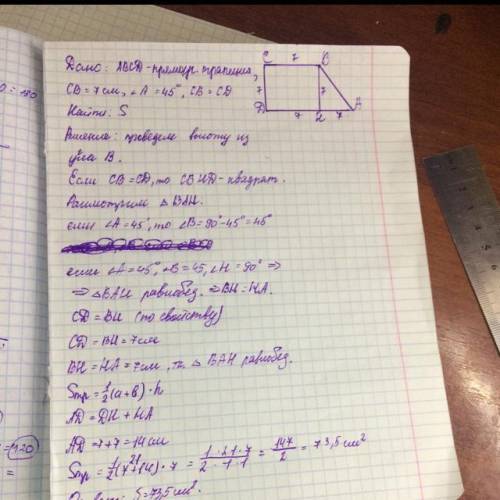 Дано: ABCD - прямоуг. трапеция,
CB = 7 см, ∠A = 45°, CB = CD
Найти: S
Решение: проведем высоту из
угла B.
Если CB = CD, то CBHD - квадрат.
Рассмотрим △ BAH.
если ∠A = 45°, то ∠B = 90° - 45° = 45°
если ∠A = 45°, ∠B = 45, ∠H = 90° ⇒
⇒ △BAH равнобед. ⇒ BH = HA.
CD = BH (по свойству)
CD = BH = 7 см
BH = HA = 7 см, т.к △ BAH равнобед.
Sтр = 1/2 (a+b) · h
AD = DH + HA
AD = 7+7 = 14 см
Sтр = 1/2 (7+14) · 7 = 1·21·7/2·1·1 = 147/2 = 73,5 см²
21
Ответ: S = 73,5 см².
C 7 B
7 7
D 7 H 7 A